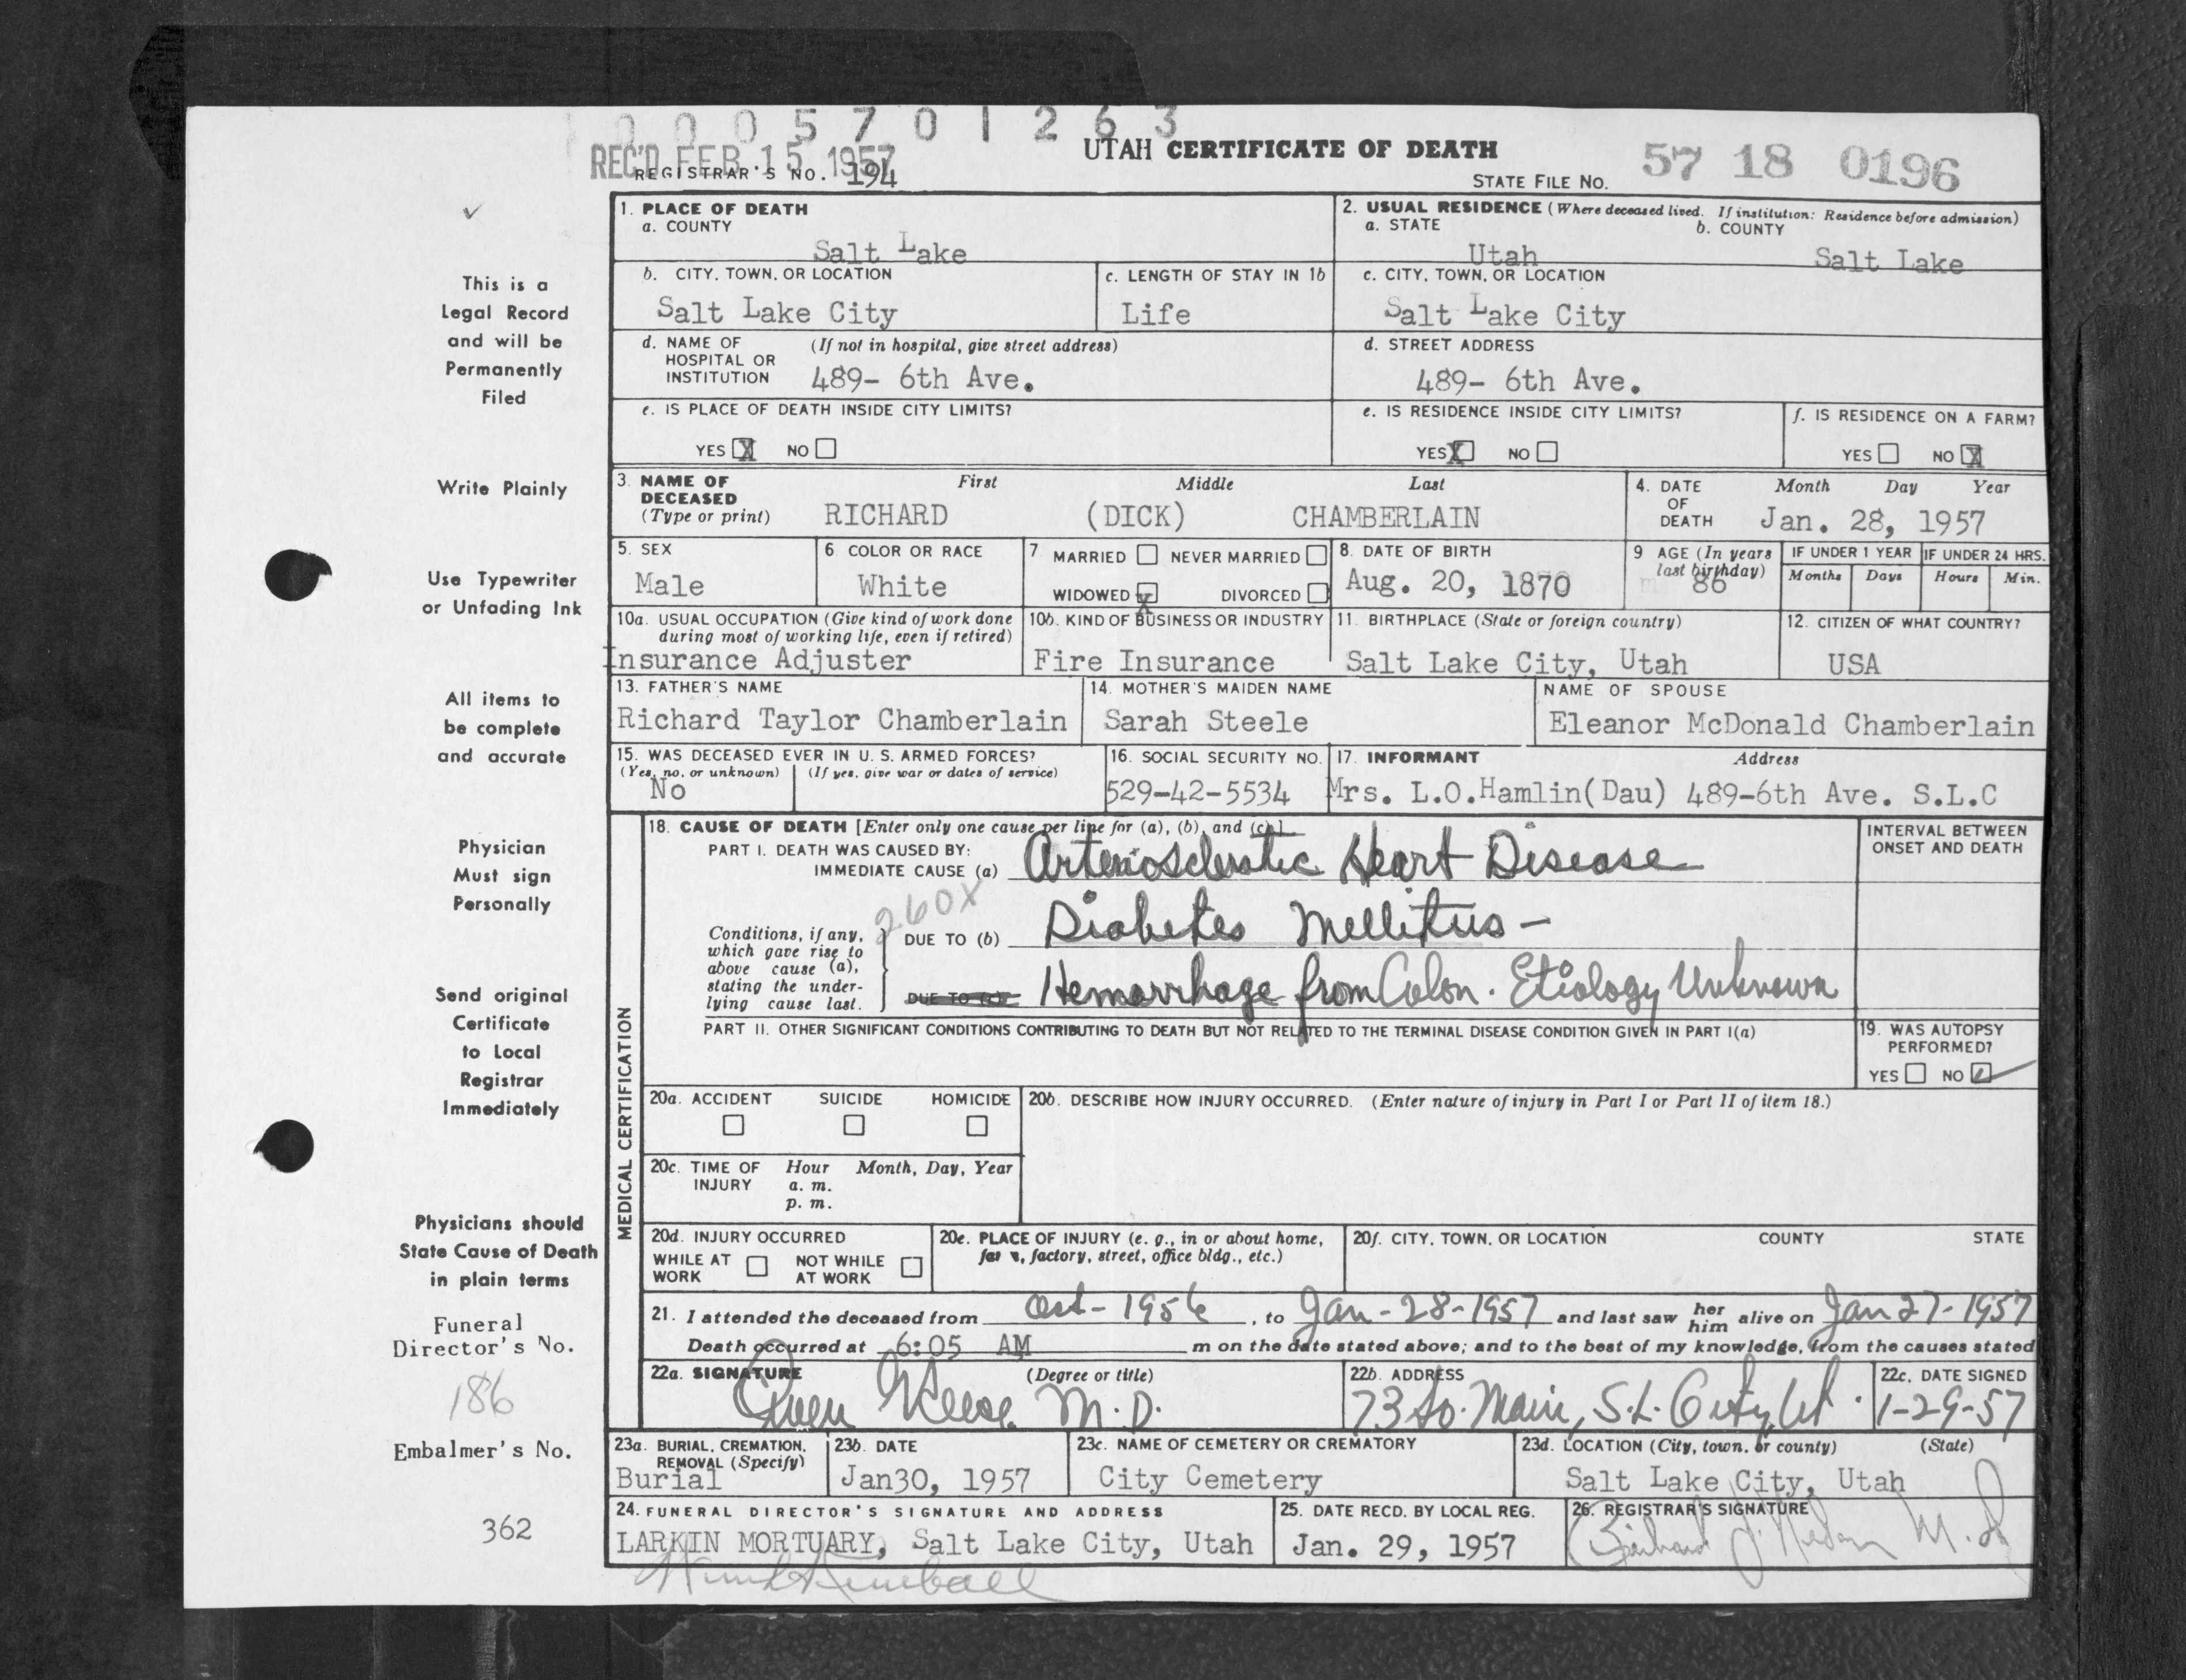 0005701263
REC'D FEB 15 1957
REGISTRAR'S NO. 194
UTAH CERTIFICATE OF DEATH
STATE FILE NO. 57 18 0196
1. PLACE OF DEATH
a. COUNTY
Salt Lake
2. USUAL RESIDENCE (Where deceased lived. If institution: Residence before admission)
a. STATE b. COUNTY
Utah Salt Lake
This is a
Legal Record
and will be
Permanently
Filed
b. CITY, TOWN, OR LOCATION
Salt Lake City
c. LENGTH OF STAY IN 1b
Life
c. CITY, TOWN, OR LOCATION
Salt Lake City
d. NAME OF (If not in hospital, give street address)
HOSPITAL OR
INSTITUTION 489- 6th Ave.
d. STREET ADDRESS
489- 6th Ave.
e. IS PLACE OF DEATH INSIDE CITY LIMITS?
YES X NO
e. IS RESIDENCE INSIDE CITY LIMITS?
YES X NO
f. IS RESIDENCE ON A FARM?
YES NO X
Write Plainly
3. NAME OF First Middle Last
DECEASED
(Type or print) RICHARD (DICK) CHAMBERLAIN
4. DATE Month Day Year
OF
DEATH Jan. 28, 1957
Use Typewriter
or Unfading Ink
5. SEX
Male
6 COLOR OR RACE
White
7 MARRIED NEVER MARRIED
WIDOWED X DIVORCED
8. DATE OF BIRTH
Aug. 20, 1870
9 AGE (In years
last birthday)
86
IF UNDER 1 YEAR IF UNDER 24 HRS.
Months Days Hours Min.
10a. USUAL OCCUPATION (Give kind of work done
during most of working life, even if retired)
Insurance Adjuster
10b. KIND OF BUSINESS OR INDUSTRY
Fire Insurance
11. BIRTHPLACE (State or foreign country)
Salt Lake City, Utah
12. CITIZEN OF WHAT COUNTRY?
USA
All items to
be complete
and accurate
13. FATHER'S NAME
Richard Taylor Chamberlain
14. MOTHER'S MAIDEN NAME
Sarah Steele
NAME OF SPOUSE
Eleanor McDonald Chamberlain
15. WAS DECEASED EVER IN U. S. ARMED FORCES?
(Yes, no, or unknown) (If yes, give war or dates of service)
No
16. SOCIAL SECURITY NO.
529-42-5534
17. INFORMANT Address
Mrs. L.O.Hamlin(Dau) 489-6th Ave. S.L.C
Physician
Must sign
Personally
MEDICAL CERTIFICATION
18. CAUSE OF DEATH [Enter only one cause per line for (a), (b), and (c).]
PART I. DEATH WAS CAUSED BY:
IMMEDIATE CAUSE (a) Arteriosclerotic Heart Disease
INTERVAL BETWEEN
ONSET AND DEATH
260X
Conditions, if any,
which gave rise to
above cause (a),
stating the under-
lying cause last.
DUE TO (b) Diabetes Mellitus -
DUE TO (c) Hemorrhage from Colon. Etiology Unknown
Send original
Certificate
to Local
Registrar
Immediately
PART II. OTHER SIGNIFICANT CONDITIONS CONTRIBUTING TO DEATH BUT NOT RELATED TO THE TERMINAL DISEASE CONDITION GIVEN IN PART I(a)
19. WAS AUTOPSY
PERFORMED?
YES NO ✓
20a. ACCIDENT SUICIDE HOMICIDE
20b. DESCRIBE HOW INJURY OCCURRED. (Enter nature of injury in Part I or Part II of item 18.)
20c. TIME OF Hour Month, Day, Year
INJURY a. m.
p. m.
Physicians should
State Cause of Death
in plain terms
20d. INJURY OCCURRED
WHILE AT NOT WHILE
WORK AT WORK
20e. PLACE OF INJURY (e. g., in or about home,
farm, factory, street, office bldg., etc.)
20f. CITY, TOWN, OR LOCATION COUNTY STATE
21. I attended the deceased from Oct - 1956, to Jan - 28 - 1957 and last saw her him alive on Jan 27 - 1957
Death occurred at 6:05 AM m on the date stated above; and to the best of my knowledge, from the causes stated
Funeral
Director's No.
186
22a. SIGNATURE (Degree or title)
Owen Reese M.D.
22b. ADDRESS
73 So. Main, S.L. City, Ut.
22c. DATE SIGNED
1-29-57
Embalmer's No.
362
23a. BURIAL, CREMATION,
REMOVAL (Specify)
Burial
23b. DATE
Jan30, 1957
23c. NAME OF CEMETERY OR CREMATORY
City Cemetery
23d. LOCATION (City, town, or county) (State)
Salt Lake City, Utah
24. FUNERAL DIRECTOR'S SIGNATURE AND ADDRESS
LARKIN MORTUARY, Salt Lake City, Utah
25. DATE RECD. BY LOCAL REG.
Jan. 29, 1957
26. REGISTRAR'S SIGNATURE
M.D.
Kimball